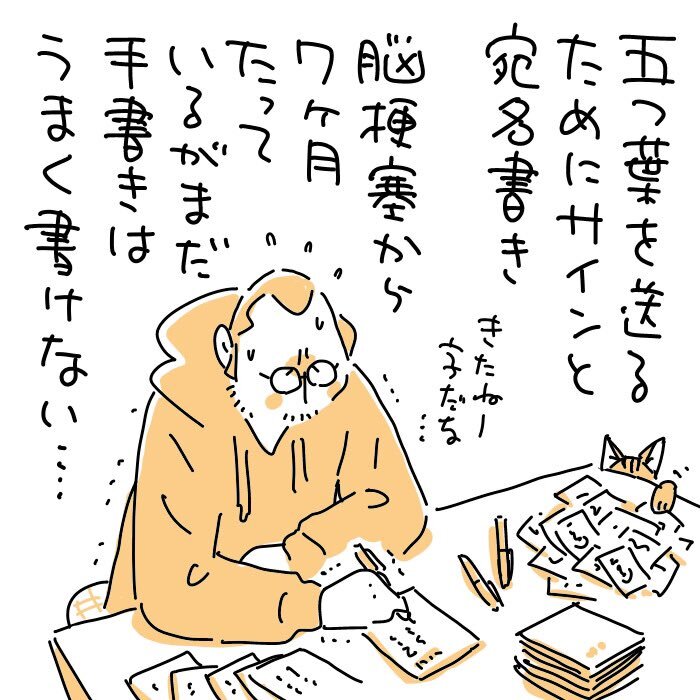 五つ葉を送る
ためにサインと
宛名書き
脳梗塞から
7ヶ月
たって
いるがまだ
手書きは
うまく書けない…
きたねー
字だな
…